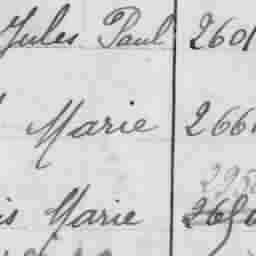 Jules Paul 2601
Marie 266
295
is Marie 2650